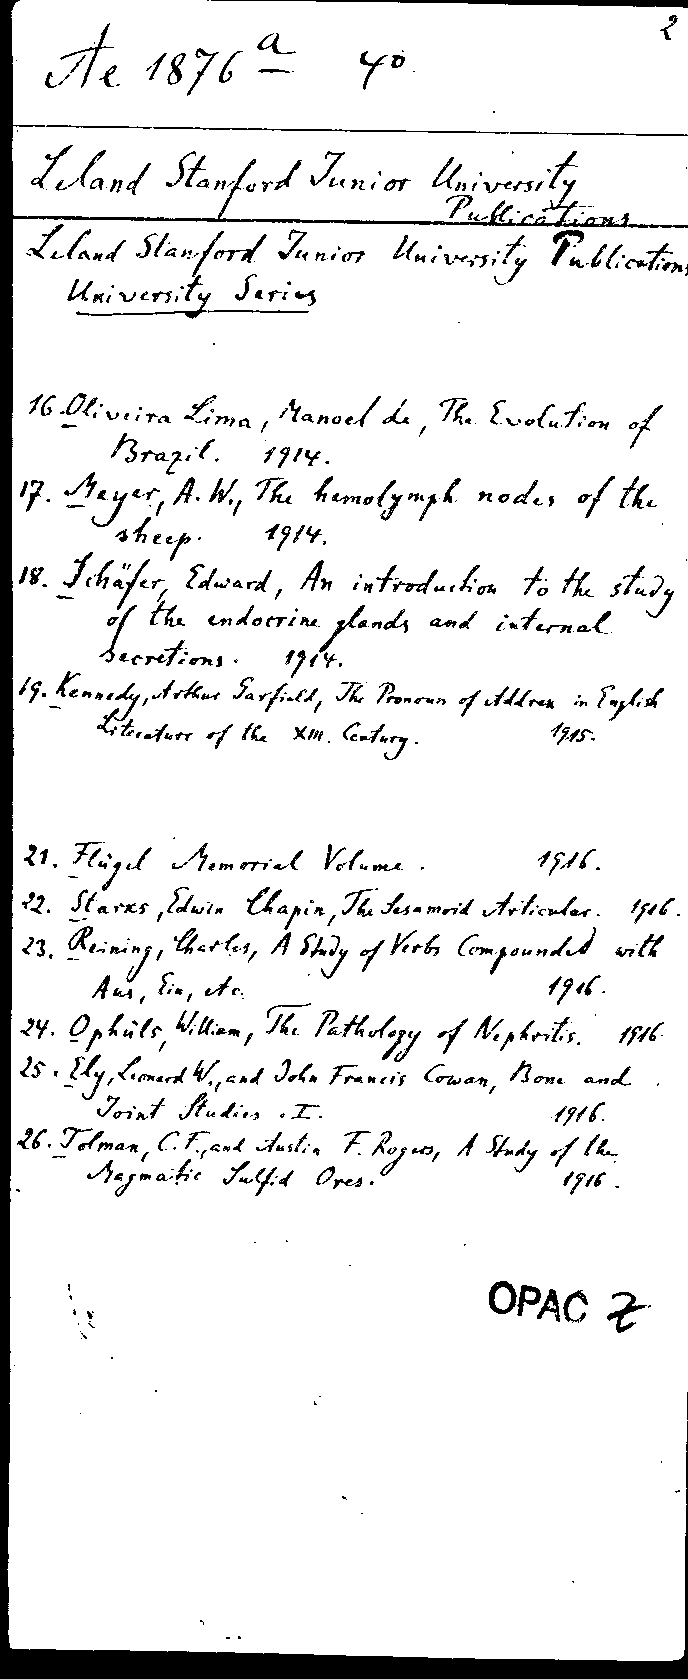 2
Ae 1876 a 4o
Leland Stanford Junior University
Publications
Leland Stanford Junior University Publications
University Series
16. Oliveira Lima, Manoel de, The Evolution of
Brazil. 1914.
17. Meyer, A. W., The hemolymph nodes of the
sheep. 1914.
18. Schäfer, Edward, An introduction to the study
of the endocrine glands and internal
secretions. 1914.
19. Kennedy, Arthur Garfield, The Pronoun of Address in English
Literature of the XIII. Century. 1915.
21. Flügel Memorial Volume. 1916.
22. Starks, Edwin Chapin, The Sesamoid Articular. 1916.
23. Reining, Charles, A Study of Verbs Compounded with
Aus, Ein, etc. 1916.
24. Ophüls, William, The Pathology of Nephritis. 1916
25. Ely, Leonard W., and John Francis Cowan, Bone and
Joint Studies. I. 1916.
26. Tolman, C. F., and Austin F. Rogers, A Study of the
Magmatic Sulfid Ores. 1916.
OPAC Z